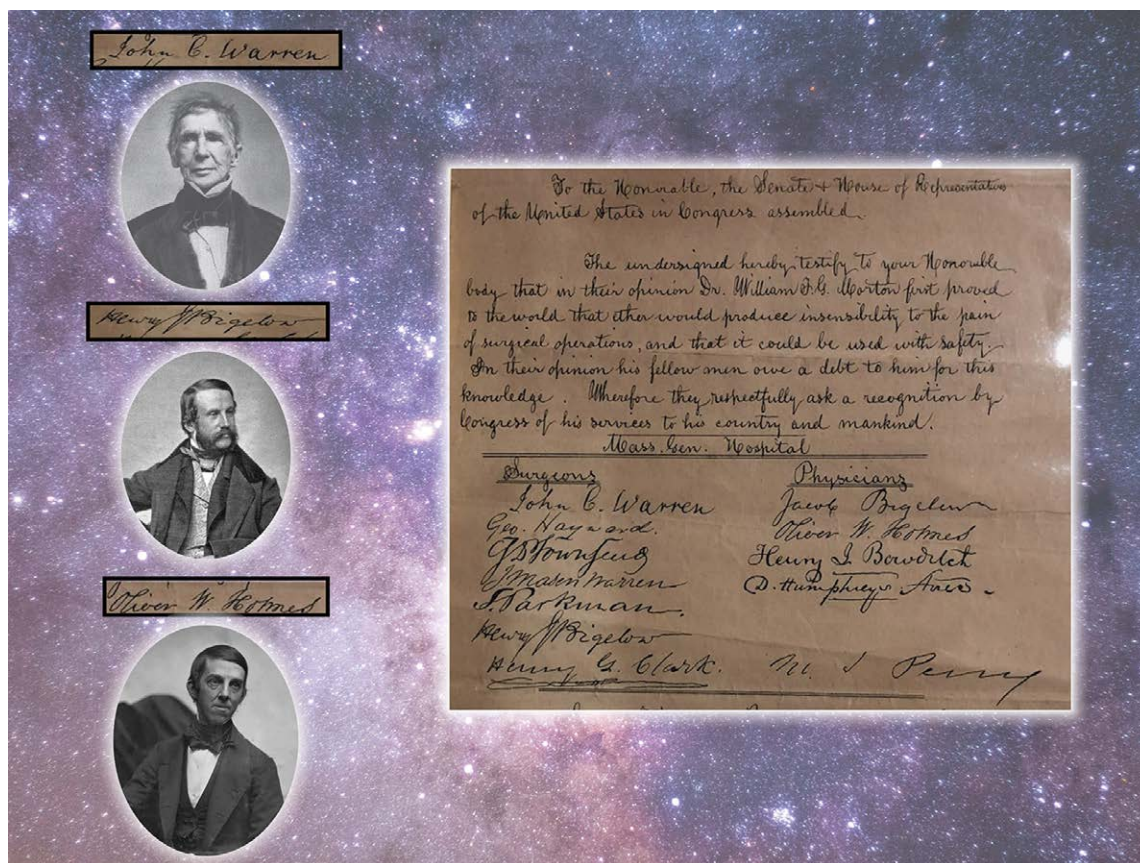 John C. Warren
Henry J Bigelow
Oliver W. Holmes
To the Honorable, the Senate + House of Representatives
of the United States in Congress assembled.
The undersigned hereby testify to your Honorable
body that in their opinion Dr. William T. G. Morton first proved
to the world that ether would produce insensibility to the pain
of surgical operations, and that it could be used with safety.
In their opinion his fellow men owe a debt to him for this
knowledge. Wherefore they respectfully ask a recognition by
Congress of his services to his country and mankind.
Mass. Gen. Hospital
Surgeons
John C. Warren
Geo. Hayward.
S D Townsend
J Mason Warren
S. Parkman.
Henry J Bigelow
Henry G. Clark.
Physicians
Jacob Bigelow
Oliver W. Holmes
Henry I. Bowditch
D. Humphreys Storer.
M. S Perry